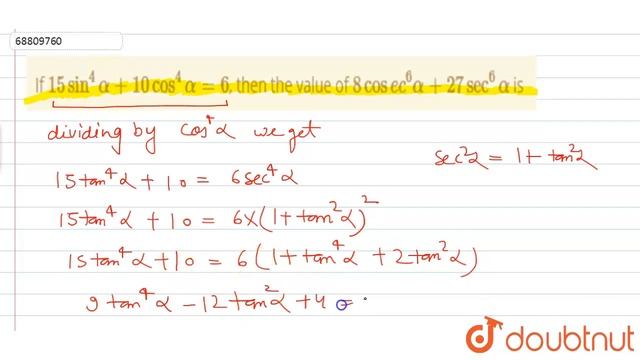 68809760
If 15 sin⁴ α + 10 cos⁴ α = 6, then the value of 8 cos ec⁶ α + 27 sec⁶ α is
dividing by cos⁴α we get
sec²α = 1 + tan²α
15 tan⁴α + 10 = 6 sec⁴α
15 tan⁴α + 10 = 6 × (1 + tan²α)²
15 tan⁴α + 10 = 6 (1 + tan⁴α + 2 tan²α)
9 tan⁴α − 12 tan²α + 4 =
doubtnut